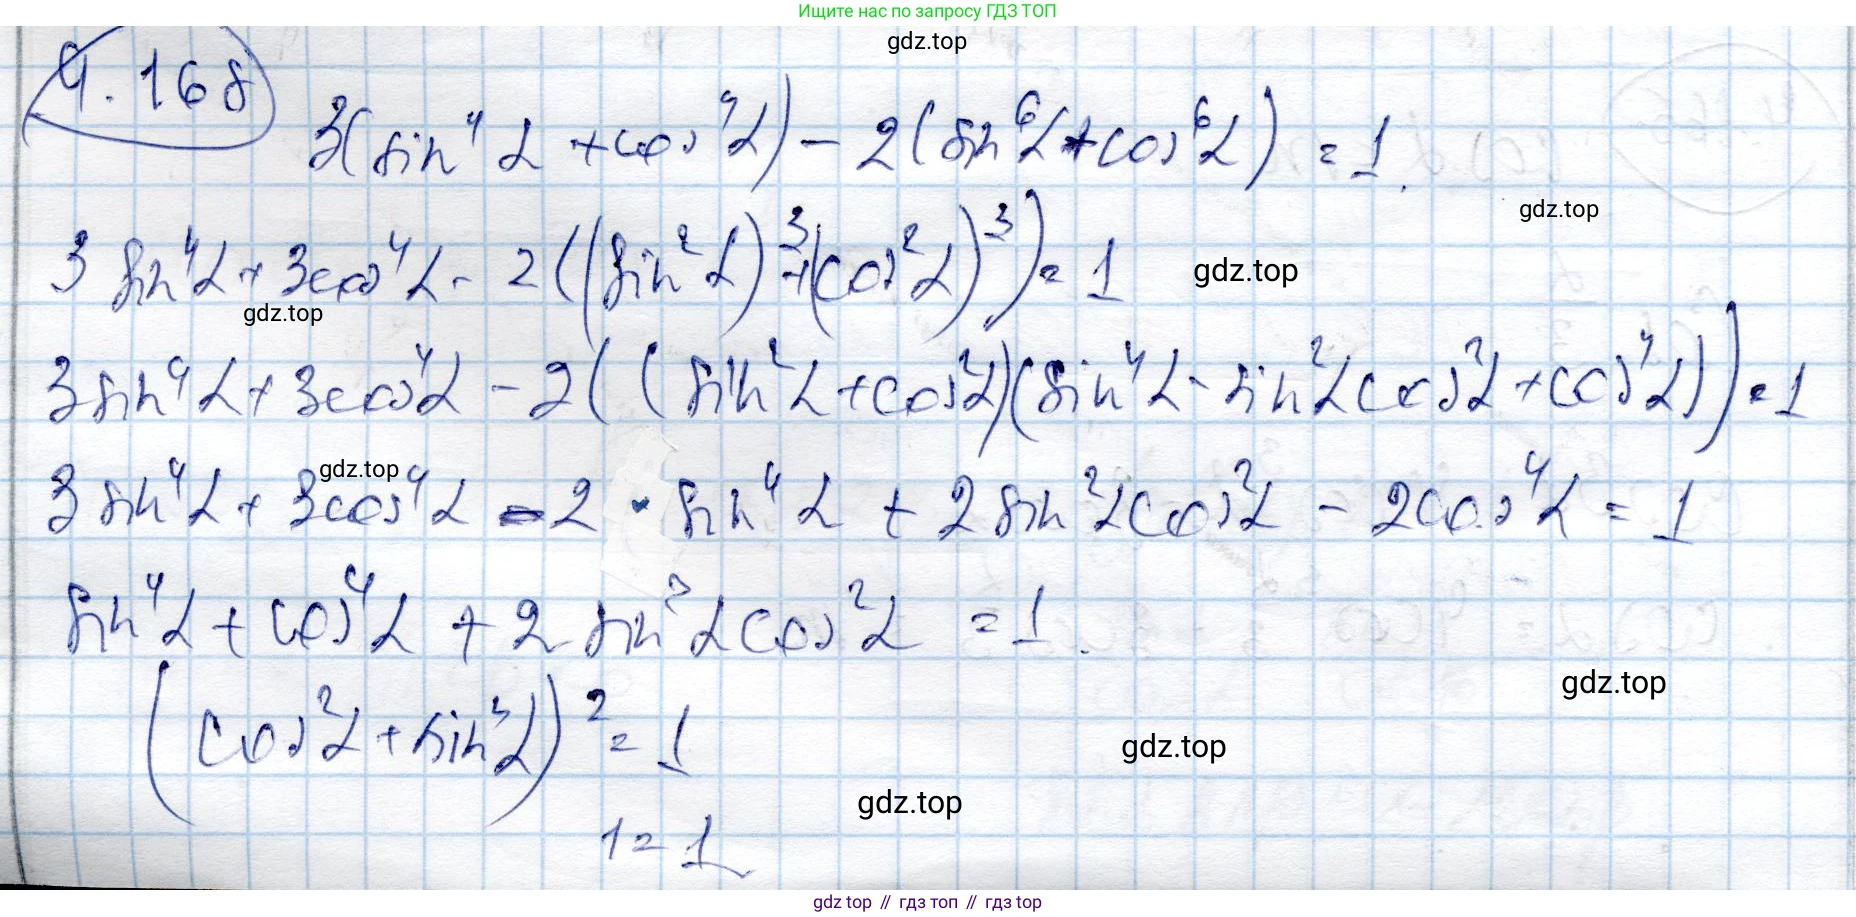 Ищите нас по запросу ГДЗ ТОП
gdz.top
4.168
3(sin⁴α + cos⁴α) − 2(sin⁶α + cos⁶α) = 1.
gdz.top
3 sin⁴α + 3cos⁴α − 2((sin²α)³ + (cos²α)³) = 1
gdz.top
gdz.top
3sin⁴α + 3cos⁴α − 2((sin²α + cos²α)(sin⁴α − sin²α cos²α + cos⁴α)) = 1
gdz.top
3sin⁴α + 3cos⁴α − 2 · sin⁴α + 2sin²α cos²α − 2cos⁴α = 1
sin⁴α + cos⁴α + 2 sin²α cos²α = 1.
gdz.top
(cos²α + sin²α)² = 1
gdz.top
gdz.top
1 = 1
gdz top // гдз топ // gdz top